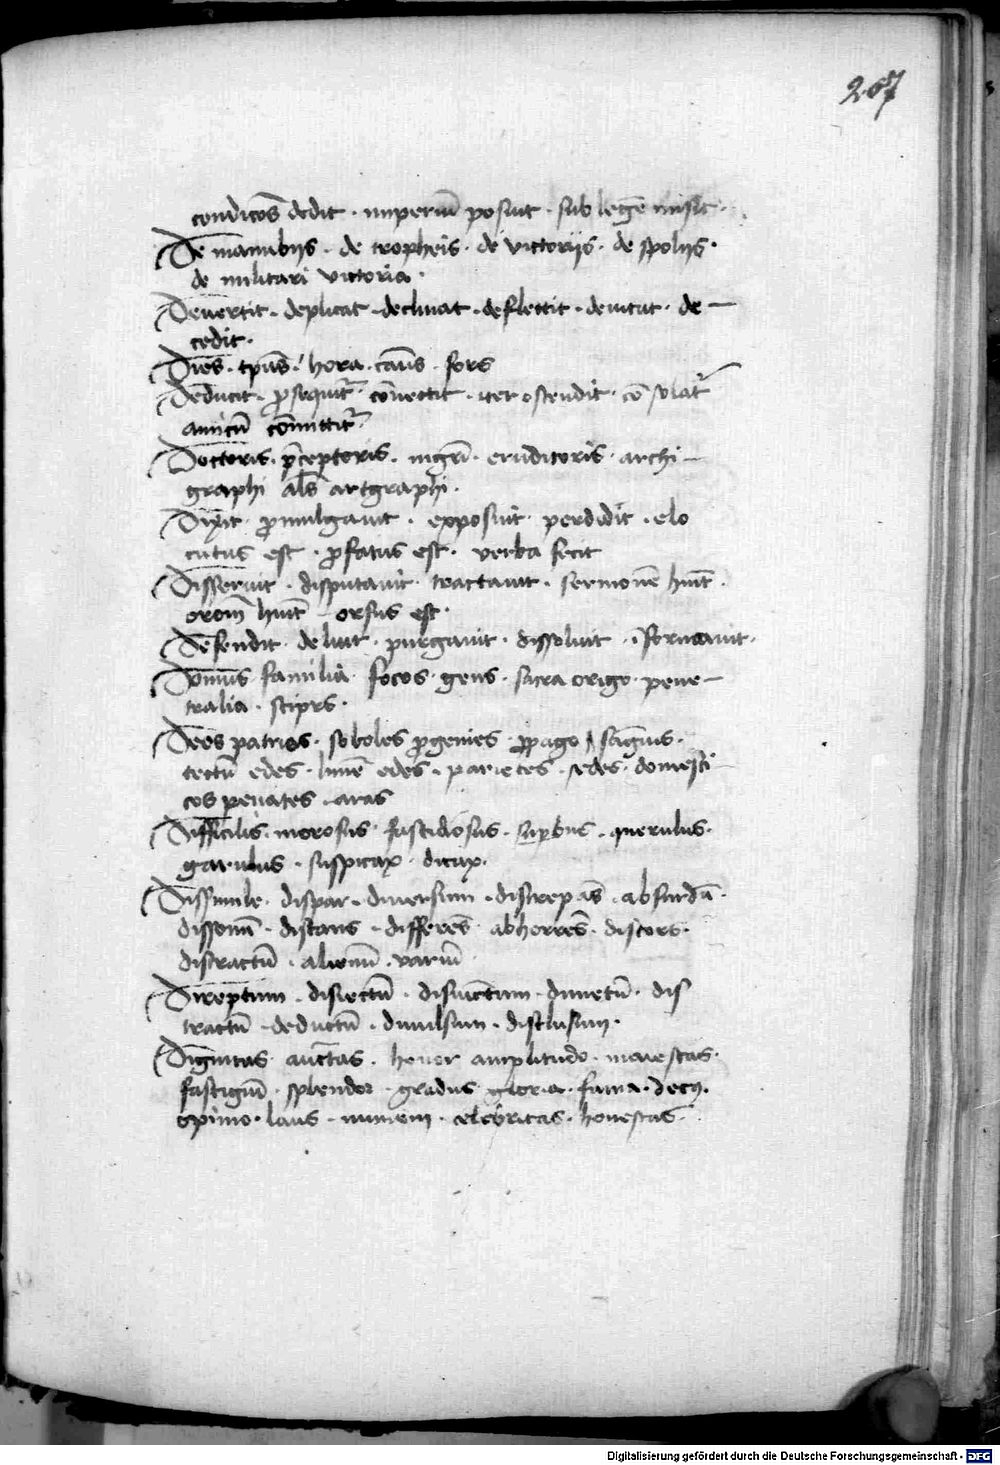 267
condicōes dedit · imperiū posuit · sub legē misit ·
De manubijs · de tropheis · de victorijs · de spolijs ·
de militari victoria ·
Deuertit · deplicat · declinat · deflectit · deuitat · de —
cedit ·
Dies · tpūs · hora · cāus · fors
Deducit · prosequit᷑ · cōuectit · iter ostendit · cōsolat᷑
amicū cōmittit᷑ ·
Doctoris · p̄ceptoris · mgrī · eruditoris · archi —
graphi al̄s artgraphi ·
Dixit · promulgauit · exposuit · perdidit · elo
cutus est · profatus est · verba fecit
Disseruit · disputauit · tractauit · sermonē huit̄ ·
orom̄ huit̄ — orsus est ·
Defendit · deluit · purgauit · dissoluit ·
Domus · familia · focos · gens · sacra origo · pene —
tralia · stirps ·
Deos patrios · soboles progenies · propago sāguis ·
tectū edes · limē edes · parietes · sedes · domesti —
cos penates · aras
Difficilis · morosus · fastidiosus · sup̱bus · querulus ·
garulus · suspicax · dicax ·
Dissimile · dispar · diuersum · discrepās · absurdū ·
dissonū · distans · differēs · abhorrēs · discors ·
distractū · alienū · variū
Direptum · disiectū · disiunctum · diuietū · dis
tractū · deductū · diuulsum · disclusum ·
Dignitas · auctt̄as · honor · amplitudo · maiestas ·
fastigiū · splendor · gradus · gloria · fama · decꝫ ·
opinio · laus · numem · celebritas · honestas ·
Digitalisierung gefördert durch die Deutsche Forschungsgemeinschaft - DFG